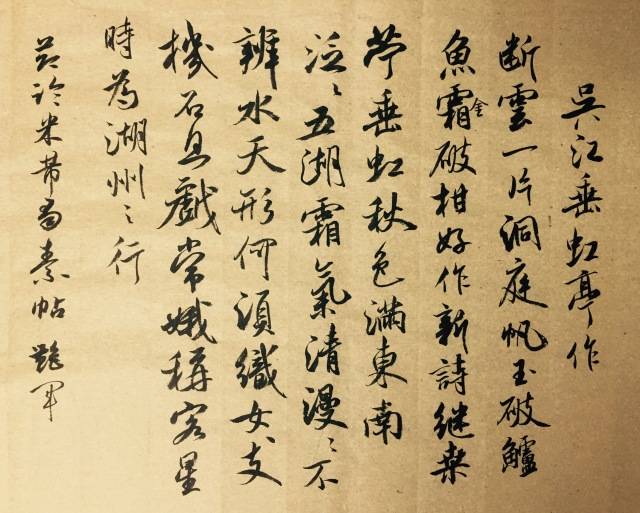 吳江垂虹亭作
断雲一片洞庭帆玉破鱸
魚霜金破柑好作新詩継桑
苧垂虹秋色滿東南
泛〻五湖霜氣清漫〻不
辨水天形何須織女支
機石且戲常娥稱客星
時為湖州之行
节临米芾蜀素帖